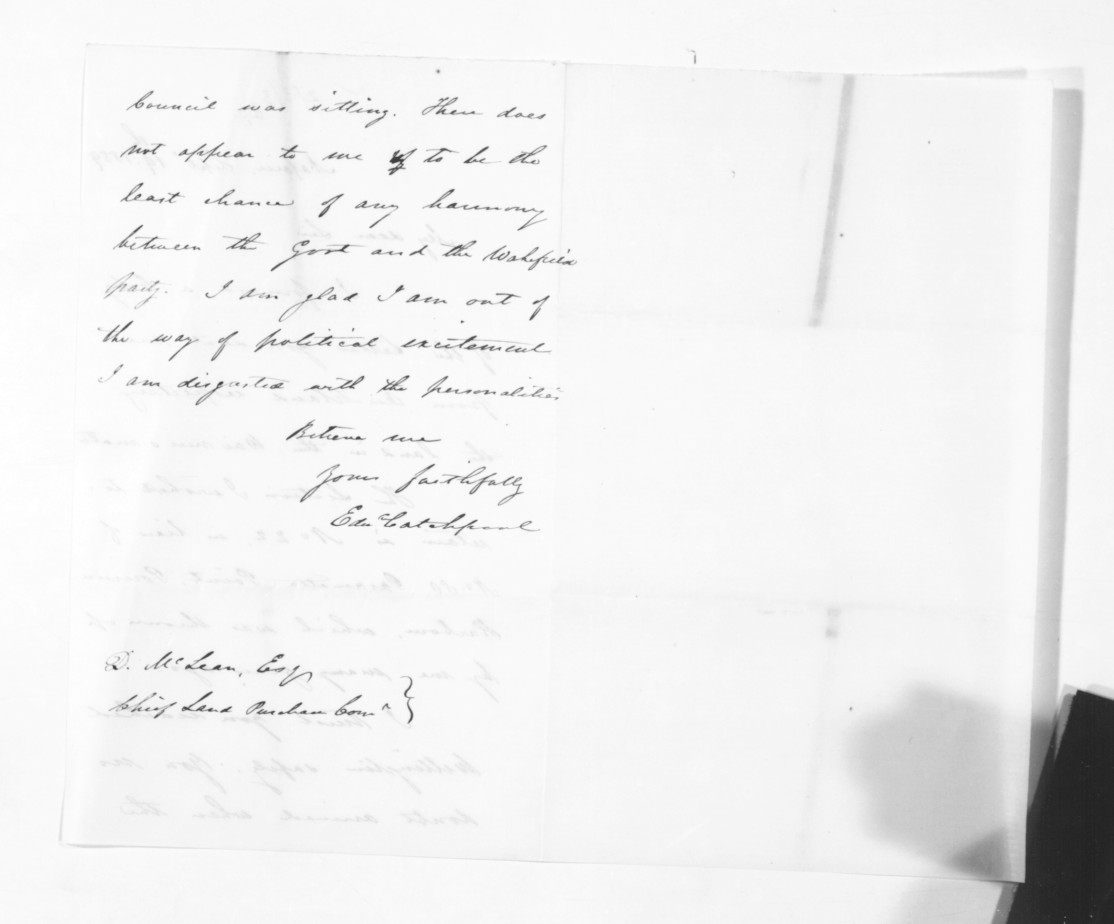 Council was sitting. There does
not appear to me to be the
least chance of any harmony
between the Govt and the Wakefield
party. I am glad I am out of
the way of political excitement
I am disgusted with the personalities
Believe me
Yours faithfully
Edw Catchpool
D. McLean, Esq,
Chief Land Purchase Comr